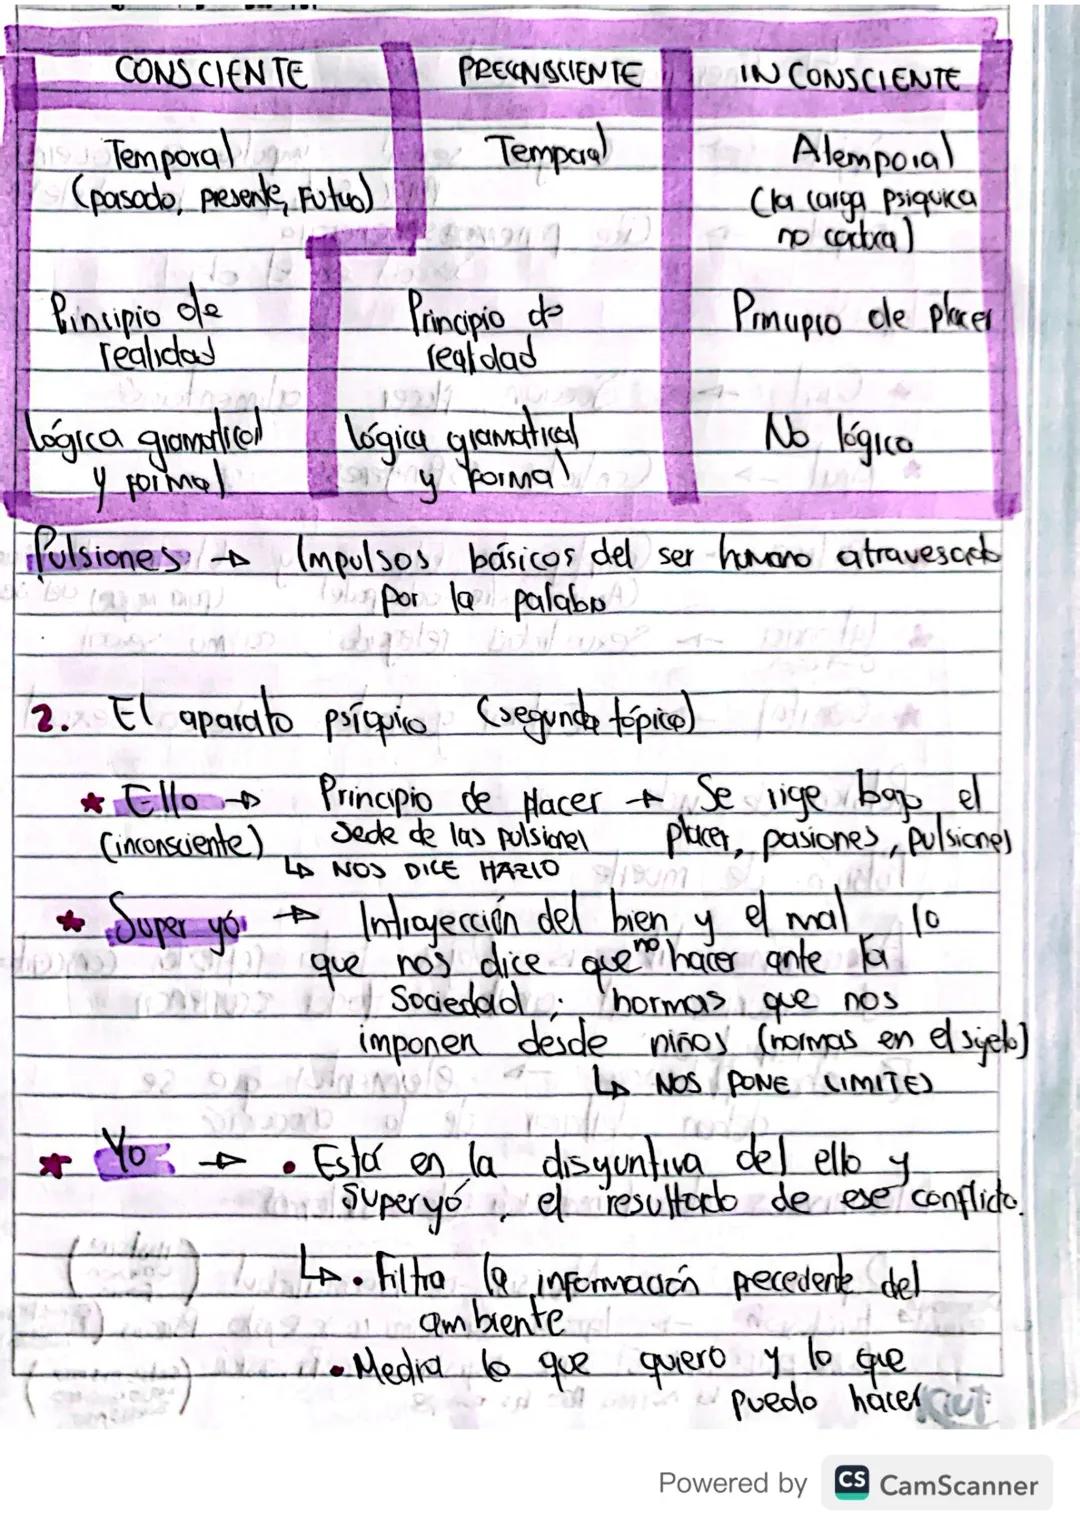 CONSCIENTE PRECONSCIENTE INCONSCIENTE
Temporal Temporal Atemporal
(pasado, presente, Futuro) (la carga psiquica
no cambia)
Principio de Principio de Principio de placer
realidad realidad
Lógica gramatical lógica gramatical No lógico
y formal y formal
Pulsiones → Impulsos básicos del ser humano atravesado
por la palabra
2. El aparato psíquico (segunda tópica)
★ Ello → Principio de placer → Se rige bajo el
(inconsciente) Sede de las pulsiones placer, pasiones, pulsiones
↳ NOS DICE HAZLO
★ Super yó → Introyección del bien y el mal lo
que nos dice que no hacer ante la
Sociedad; normas que nos
imponen desde niños (normas en el sujeto)
↳ NOS PONE LIMITES
★ Yo → • Está en la disyuntiva del ello y
Superyó, el resultado de ese conflicto.
↳ • Filtra la información precedente del
ambiente
• Media lo que quiero y lo que
puedo hacer
Powered by CS CamScanner